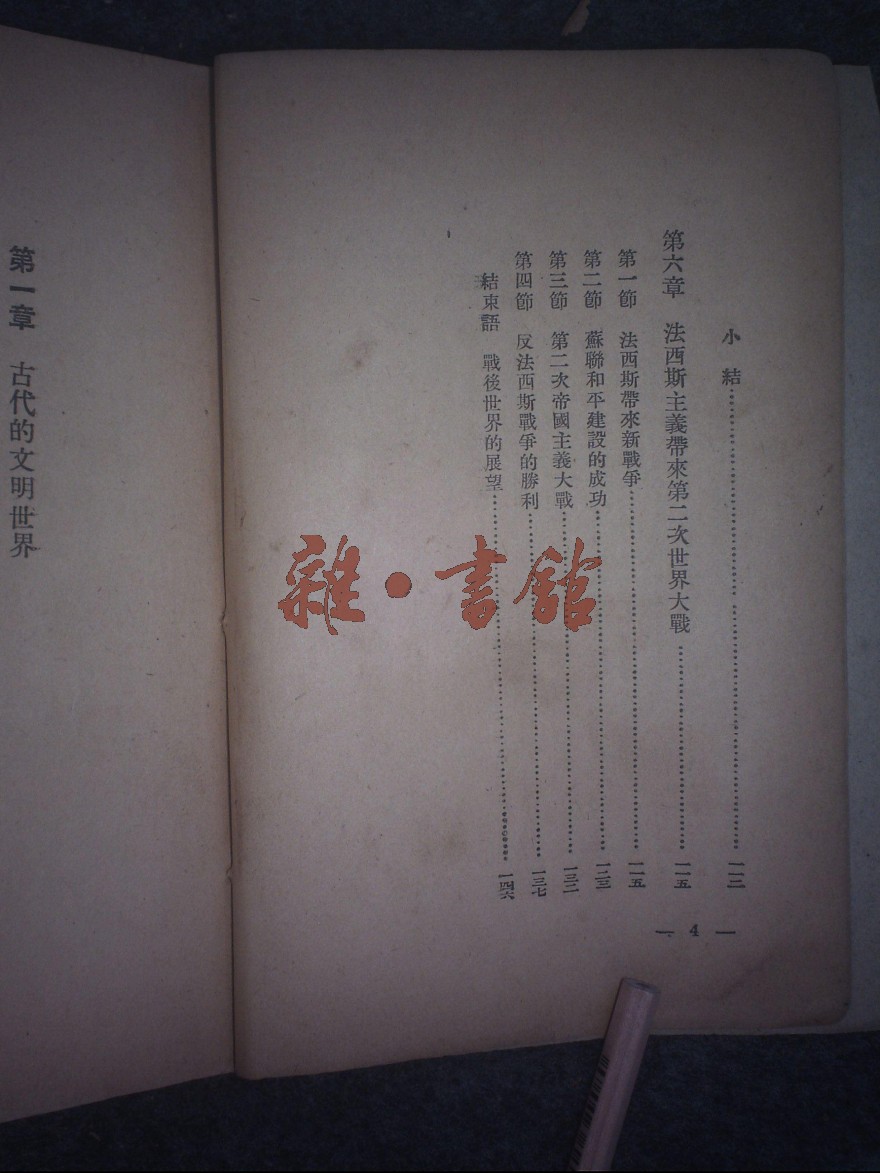 小結 一一二
第六章 法西斯主義帶來第二次世界大戰 一一五
第一節 法西斯帶來新戰爭 一一五
第二節 蘇聯和平建設的成功 一二三
第三節 第二次帝國主義大戰 一三二
第四節 反法西斯戰爭的勝利 一三七
結束語 戰後世界的展望 一四六
— 4 —
第一章 古代的文明世界
雜·書館